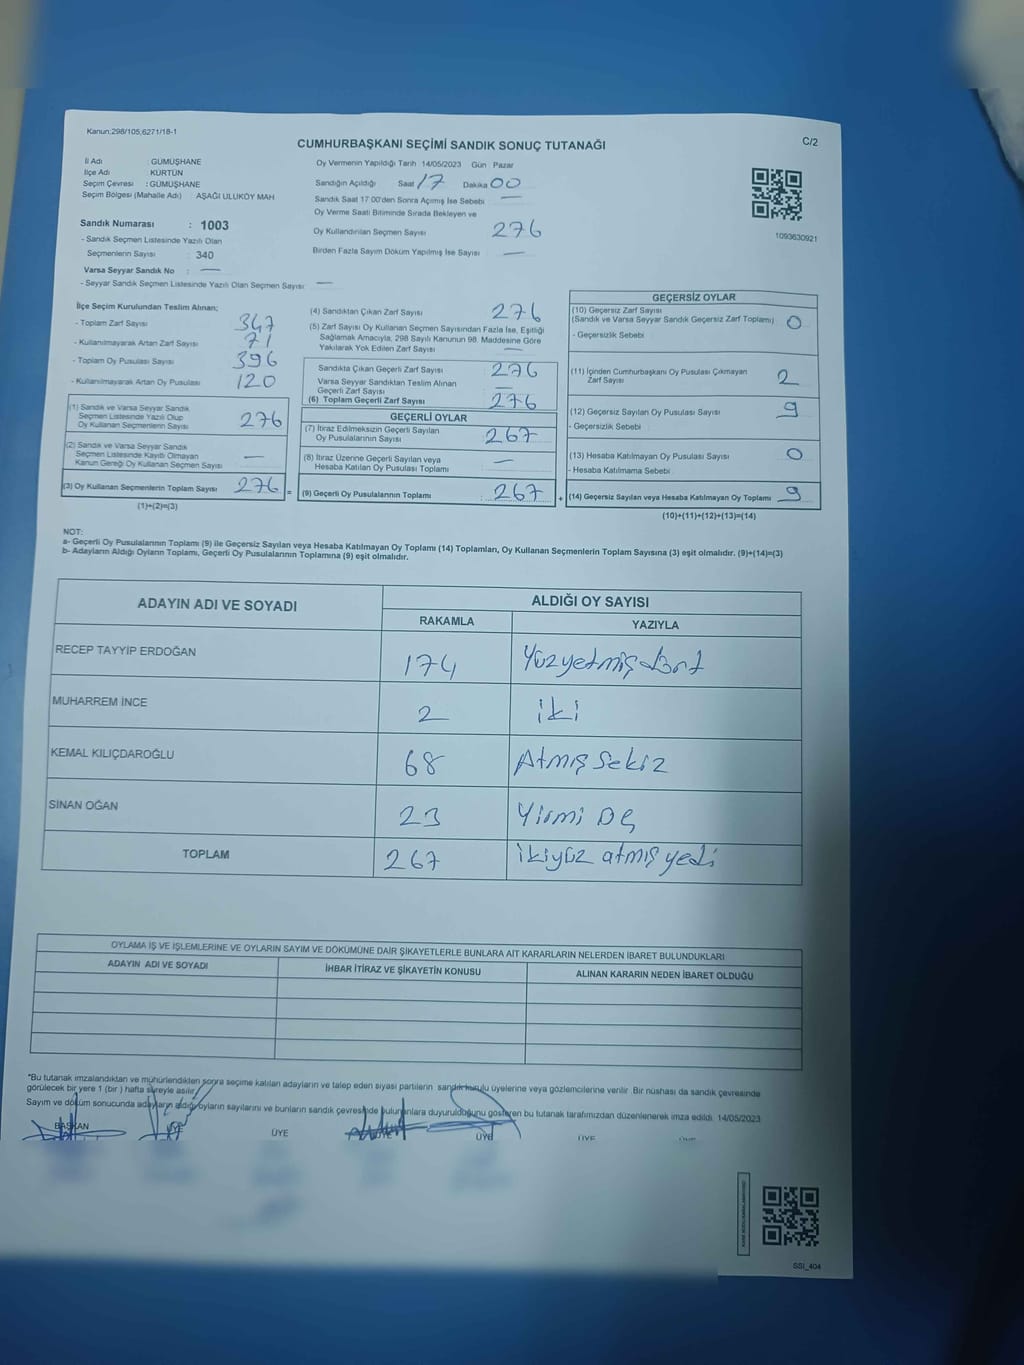 Kanun:298/105,6271/18-1
C/2
CUMHURBAŞKANI SEÇİMİ SANDIK SONUÇ TUTANAĞI
İl Adı : GÜMÜŞHANE
İlçe Adı KÜRTÜN
Seçim Çevresi : GÜMÜŞHANE
Seçim Bölgesi (Mahalle Adı) : AŞAĞI ULUKÖY MAH
Sandık Numarası : 1003
- Sandık Seçmen Listesinde Yazılı Olan
Seçmenlerin Sayısı : 340
Varsa Seyyar Sandık No : —
- Seyyar Sandık Seçmen Listesinde Yazılı Olan Seçmen Sayısı: —
Oy Vermenin Yapıldığı Tarih 14/05/2023 Gün Pazar
Sandığın Açıldığı Saat 17 Dakika 00
Sandık Saat 17:00'den Sonra Açımış İse Sebebi —
Oy Verme Saati Bitiminde Sırada Bekleyen ve
Oy Kullandırılan Seçmen Sayısı 276
Birden Fazla Sayım Döküm Yapılmış İse Sayısı —
1093630921
İlçe Seçim Kurulundan Teslim Alınan;
- Toplam Zarf Sayısı 347
- Kullanılmayarak Artan Zarf Sayısı 71
- Toplam Oy Pusulası Sayısı 396
- Kullanılmayarak Artan Oy Pusulası 120
(1) Sandık ve Varsa Seyyar Sandık
Seçmen Listesinde Yazılı Olup
Oy Kullanan Seçmenlerin Sayısı 276
(2) Sandık ve Varsa Seyyar Sandık
Seçmen Listesinde Kayıtlı Olmayan
Kanun Gereği Oy Kullanan Seçmen Sayısı —
(3) Oy Kullanan Seçmenlerin Toplam Sayısı 276 =
(1)+(2)=(3)
(4) Sandıktan Çıkan Zarf Sayısı 276
(5) Zarf Sayısı Oy Kullanan Seçmen Sayısından Fazla İse, Eşitliği
Sağlamak Amacıyla; 298 Sayılı Kanunun 98. Maddesine Göre
Yakılarak Yok Edilen Zarf Sayısı —
Sandıkta Çıkan Geçerli Zarf Sayısı 276
Varsa Seyyar Sandıktan Teslim Alınan
Geçerli Zarf Sayısı —
(6) Toplam Geçerli Zarf Sayısı 276
GEÇERLİ OYLAR
(7) İtiraz Edilmeksizin Geçerli Sayılan
Oy Pusulalarının Sayısı 267
(8) İtiraz Üzerine Geçerli Sayılan veya
Hesaba Katılan Oy Pusulası Toplamı —
(9) Geçerli Oy Pusulalarının Toplamı : 267 +
GEÇERSİZ OYLAR
(10) Geçersiz Zarf Sayısı
(Sandık ve Varsa Seyyar Sandık Geçersiz Zarf Toplamı) 0
- Geçersizlik Sebebi
(11) İçinden Cumhurbaşkanı Oy Pusulası Çıkmayan
Zarf Sayısı 2
(12) Geçersiz Sayılan Oy Pusulası Sayısı 9
- Geçersizlik Sebebi
(13) Hesaba Katılmayan Oy Pusulası Sayısı 0
- Hesaba Katılmama Sebebi
(14) Geçersiz Sayılan veya Hesaba Katılmayan Oy Toplamı 9
(10)+(11)+(12)+(13)=(14)
NOT:
a- Geçerli Oy Pusulalarının Toplamı (9) ile Geçersiz Sayılan veya Hesaba Katılmayan Oy Toplamı (14) Toplamları, Oy Kullanan Seçmenlerin Toplam Sayısına (3) eşit olmalıdır. (9)+(14)=(3)
b- Adayların Aldığı Oyların Toplamı, Geçerli Oy Pusulalarının Toplamına (9) eşit olmalıdır.
ADAYIN ADI VE SOYADI ALDIĞI OY SAYISI
RAKAMLA YAZIYLA
RECEP TAYYİP ERDOĞAN 174 Yüzyetmiş dört
MUHARREM İNCE 2 iki
KEMAL KILIÇDAROĞLU 68 Atmış Sekiz
SİNAN OĞAN 23 Yirmi Üç
TOPLAM 267 ikiyüz atmış yedi
OYLAMA İŞ VE İŞLEMLERİNE VE OYLARIN SAYIM VE DÖKÜMÜNE DAİR ŞİKAYETLERLE BUNLARA AİT KARARLARIN NELERDEN İBARET BULUNDUKLARI
ADAYIN ADI VE SOYADI İHBAR İTİRAZ VE ŞİKAYETİN KONUSU ALINAN KARARIN NEDEN İBARET OLDUĞU
"Bu tutanak imzalandıktan ve mühürlendikten sonra seçime katılan adayların ve talep eden siyasi partilerin sandık kurulu üyelerine veya gözlemcilerine verilir. Bir nüshası da sandık çevresinde
görülecek bir yere 1 (bir) hafta süreyle asılır.
Sayım ve döküm sonucunda adayların aldığı oyların sayılarını ve bunların sandık çevresinde bulunanlara duyurulduğunu gösteren bu tutanak tarafımızdan düzenlenerek imza edildi. 14/05/2023
BAŞKAN ÜYE ÜYE ÜYE
SSİ_404